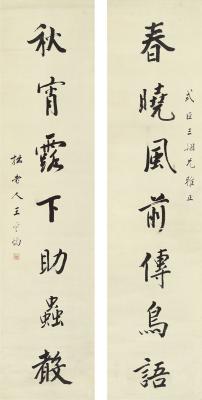 式臣三姻兄雅正
春曉風前傳鳥語
秋宵露下助蟲聲
人王